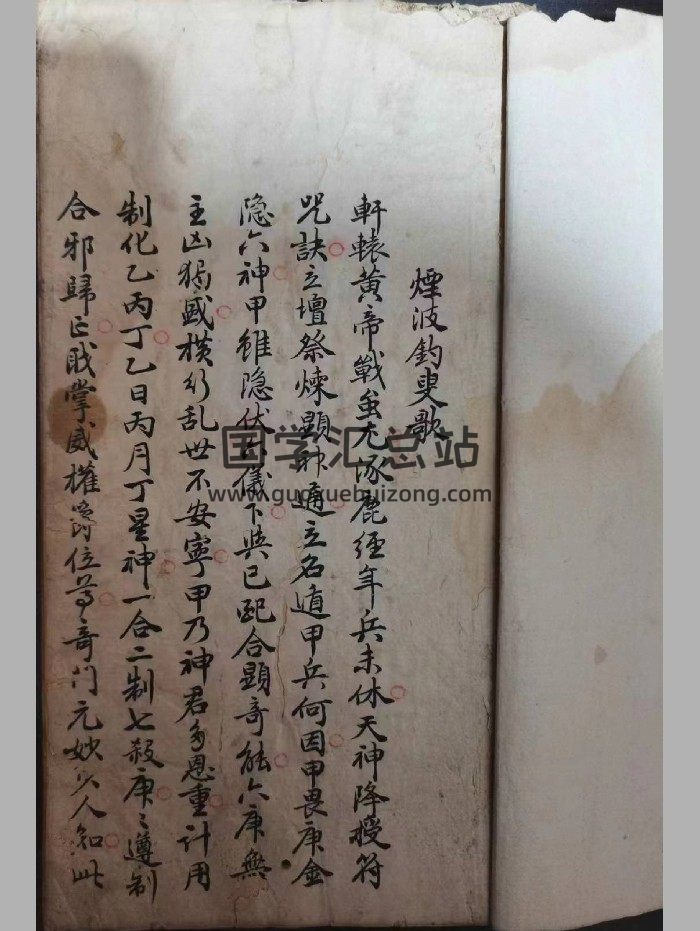 煙波釣叟歌
軒轅黃帝戰蚩尤涿鹿經年兵未休天神降授符
咒訣立壇祭煉顯神通立名遁甲兵何因甲畏庚金
隐六神甲雖隐伏六儀下與己配合顯奇能六庚無
主凶猖盛橫行乱世不安寧甲乃神君多恩重計用
制化乙丙丁乙日丙月丁星神一合二制七殺庚〻遵制
合邪歸正戝掌威權爵位尊奇門元妙少人知此
国学汇总站
www.guoxuehuizong.com